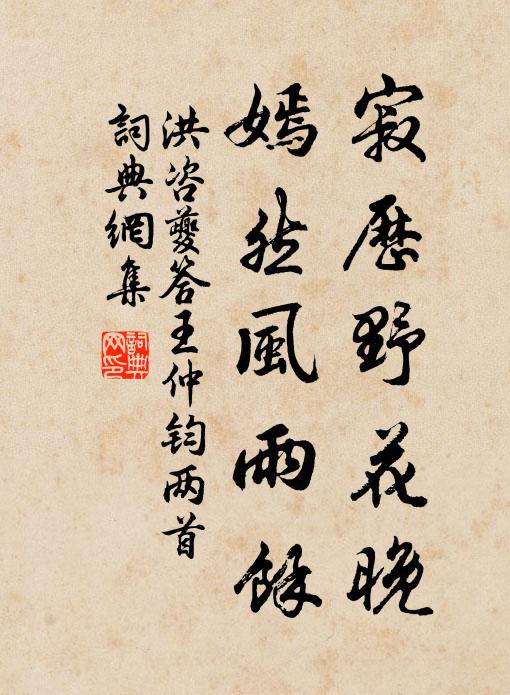 寂歷野花晚
嫣然風雨餘
洪咨夔答王仲鈞兩首
詞典網集
詞典
网印